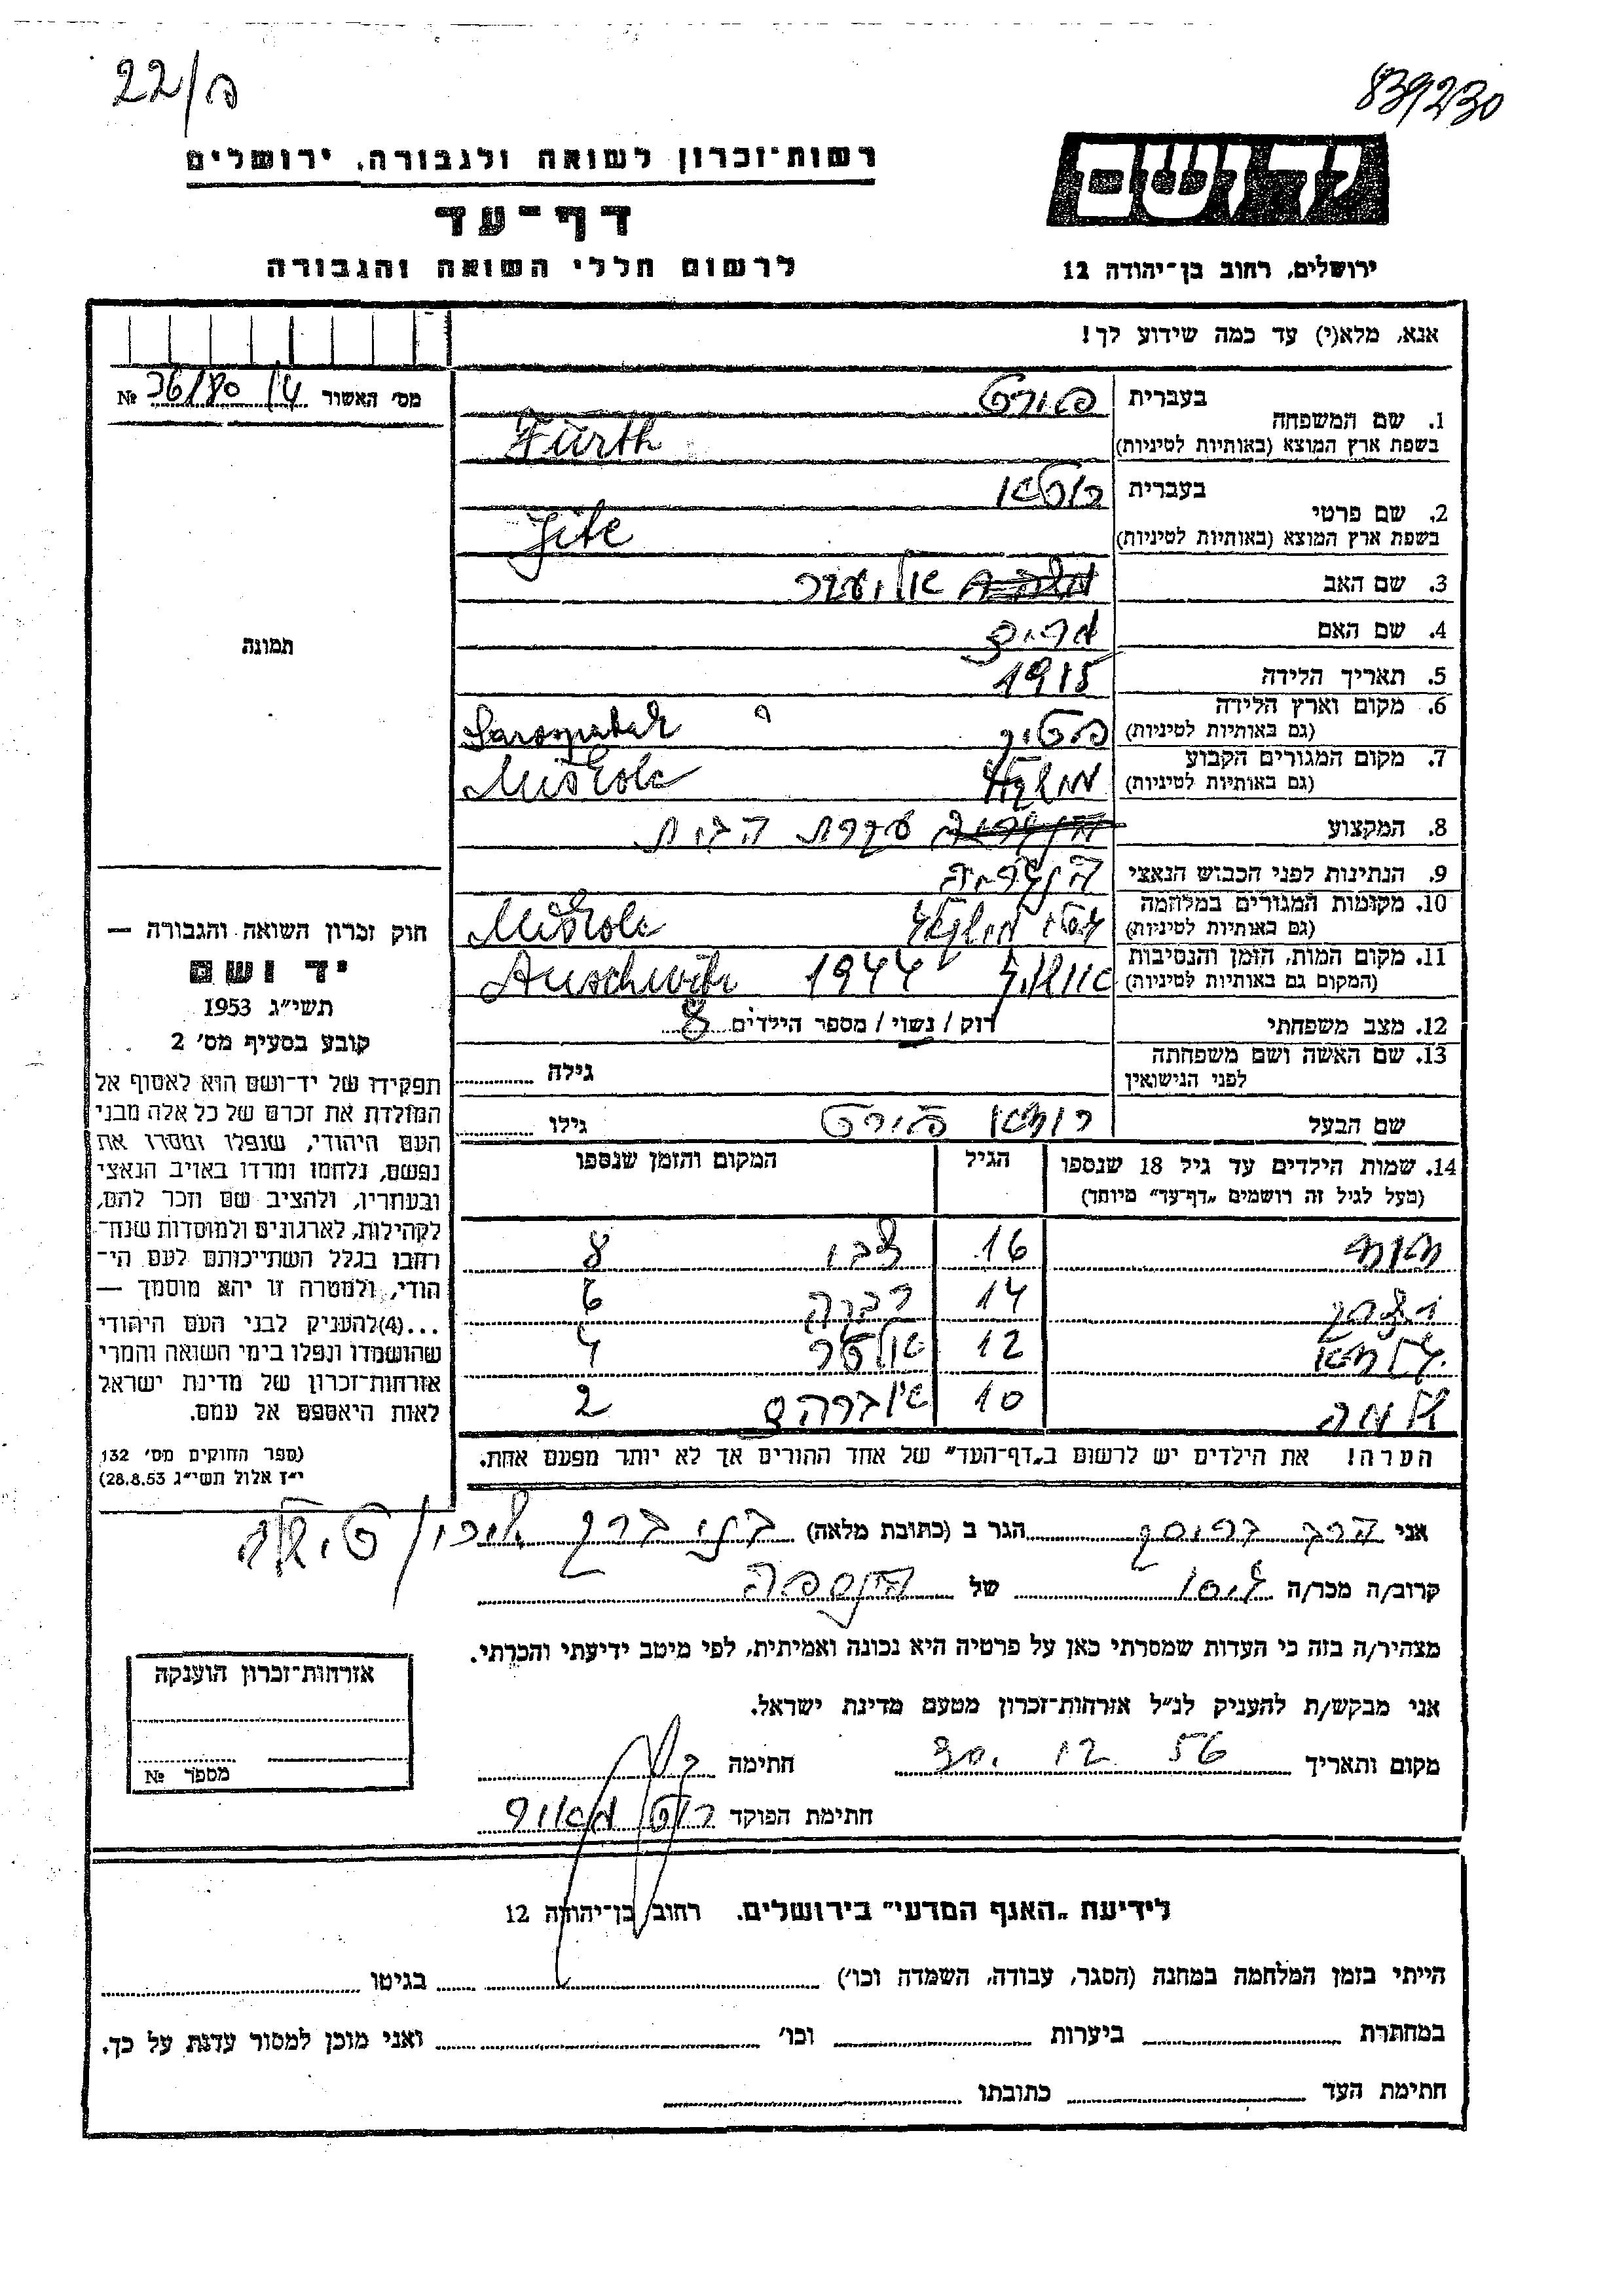 22/ה
839230
רשות־זכרון לשואה ולגבורה, ירושלים
יד ושם
דף־עד
לרשום חללי השואה והגבורה
ירושלים, רחוב בן־יהודה 12
אנא, מלא(י) עד כמה שידוע לך!
מס׳ האשור № 36/80
1. שם המשפחה
בעברית פורט
בשפת ארץ המוצא (באותיות לטיניות) Fürth
2. שם פרטי
בעברית
בשפת ארץ המוצא (באותיות לטיניות)
3. שם האב אליעזר
4. שם האם מרים
5. תאריך הלידה 1915
6. מקום וארץ הלידה
(גם באותיות לטיניות) Sarospatak
7. מקום המגורים הקבוע
(גם באותיות לטיניות) Miskolc
8. המקצוע עקרת הבית
9. הנתינות לפני הכבוש הנאצי הונגריה
10. מקומות המגורים במלחמה
(גם באותיות לטיניות) גטו מישקולץ Miskolc
11. מקום המות, הזמן והנסיבות
(המקום גם באותיות לטיניות) אושויץ 1944 Auschwitz
12. מצב משפחתי רוק / נשוי / מספר הילדים 8
13. שם האשה ושם משפחתה
לפני הנישואין גילה
שם הבעל פורט גילו
14. שמות הילדים עד גיל 18 שנספו
(מעל לגיל זה רושמים „דף־עד״ מיוחד)
הגיל
המקום והזמן שנספו
16 צבי 8
14 רבקה 6
12 אלטר 4
10 אברהם 2
הערה! את הילדים יש לרשום ב„דף־העד״ של אחד ההורים אך לא יותר מפעם אחת.
תמונה
חוק זכרון השואה והגבורה —
יד ושם
תשי״ג 1953
קובע בסעיף מס׳ 2
תפקידו של יד־ושם הוא לאסוף אל
המולדת את זכרם של כל אלה מבני
העם היהודי, שנפלו ומסרו את
נפשם, נלחמו ומרדו באויב הנאצי
ובעוזריו, ולהציב שם וזכר להם,
לקהילות, לארגונים ולמוסדות שנח־
רבו בגלל השתייכותם לעם הי־
הודי, ולמטרה זו יהא מוסמך —
...(4) להעניק לבני העם היהודי
שהושמדו ונפלו בימי השואה והמרי
אזרחות־זכרון של מדינת ישראל
לאות היאספם אל עמם.
(ספר החוקים מס׳ 132,
י״ז אלול תשי״ג 28.8.53)
אני הגר ב (כתובת מלאה) בני ברק
קרוב/ה מכר/ה גיסו של הנספה
מצהיר/ה בזה כי העדות שמסרתי כאן על פרטיה היא נכונה ואמיתית, לפי מיטב ידיעתי והכרתי.
אני מבקש/ת להעניק לנ״ל אזרחות־זכרון מטעם מדינת ישראל.
מקום ותאריך 30. 12 56 חתימה
חתימת הפוקד
אזרחות־זכרון הוענקה
מספר №
לידיעת „האגף המדעי״ בירושלים. רחוב בן־יהודה 12
הייתי בזמן המלחמה במחנה (הסגר, עבודה, השמדה וכו׳) בגיטו
במחתרת ביערות וכו׳ ואני מוכן למסור עדות על כך.
חתימת העד כתובתו